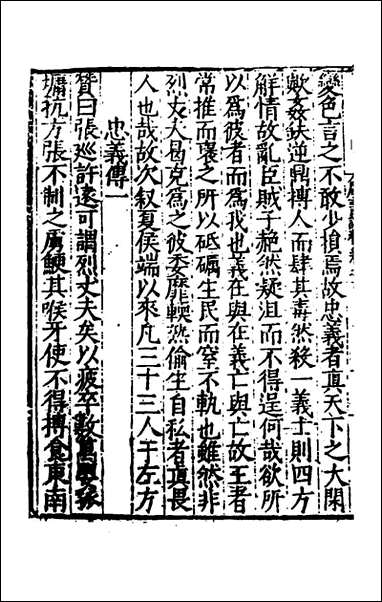 變色言之不敢少搶焉故忠義者真天下之大閑
歟姦鈇逆鼎搏人而肆其毒然殺一義士則四方
解情故亂臣賊子赩然疑沮而不得逞何哉欲所
以爲彼者而爲我也義在與在義亡與亡故王者
常推而褒之所以砥礪生民而窒不軌也雖然非
烈丈夫曷克爲之彼委靡輭熟偷生自私者真畏
人也哉故次叙夏侯端以來凡三十三人于左方
忠義傳一
贊曰張巡許遠可謂烈丈夫矣以疲卒數萬嬰孤
墉抗方張不制之虜鯁其喉牙使不得搏食東南